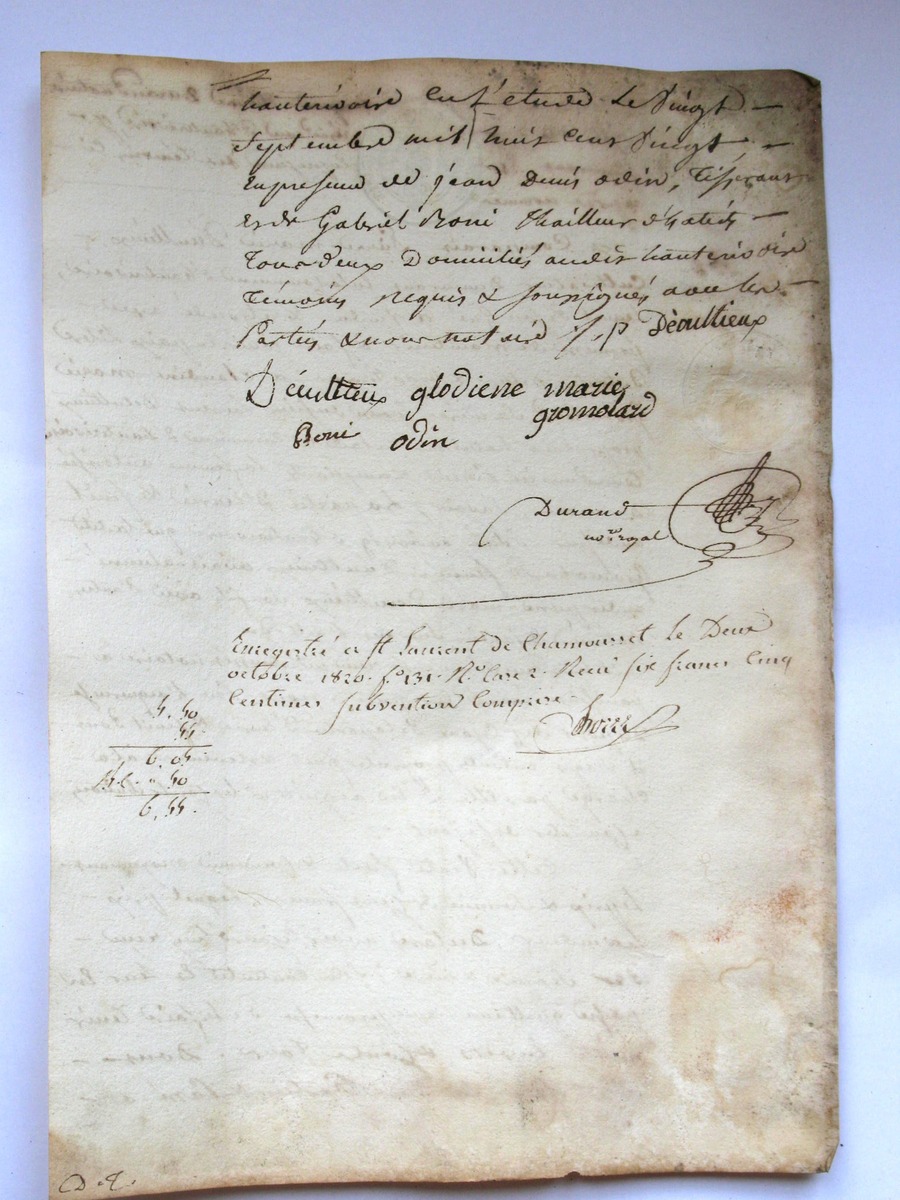 hauterivoire en L'etude Le Vingt
Septembre mil huit cent Vingt
En presence de jean Denis odin, Tisserant
et de Gabriel Boni thailleur d'habits
Tous deux Domiciliés audit hauterivoire
Témoins requis & soussignés avec les
Parties & nous notaire J, p Déculltieux
Décultteux glodiene marie
gromolard
Boni odin
Durand
no.re royal
Enregistré a St Laurent de Chamousset le Deux
octobre 1820. f.o 131. R.o Case 2. Recu six francs Cinq
Centimes subvention Comprise.
5, 50
55.
6, 05
50
6, 55.